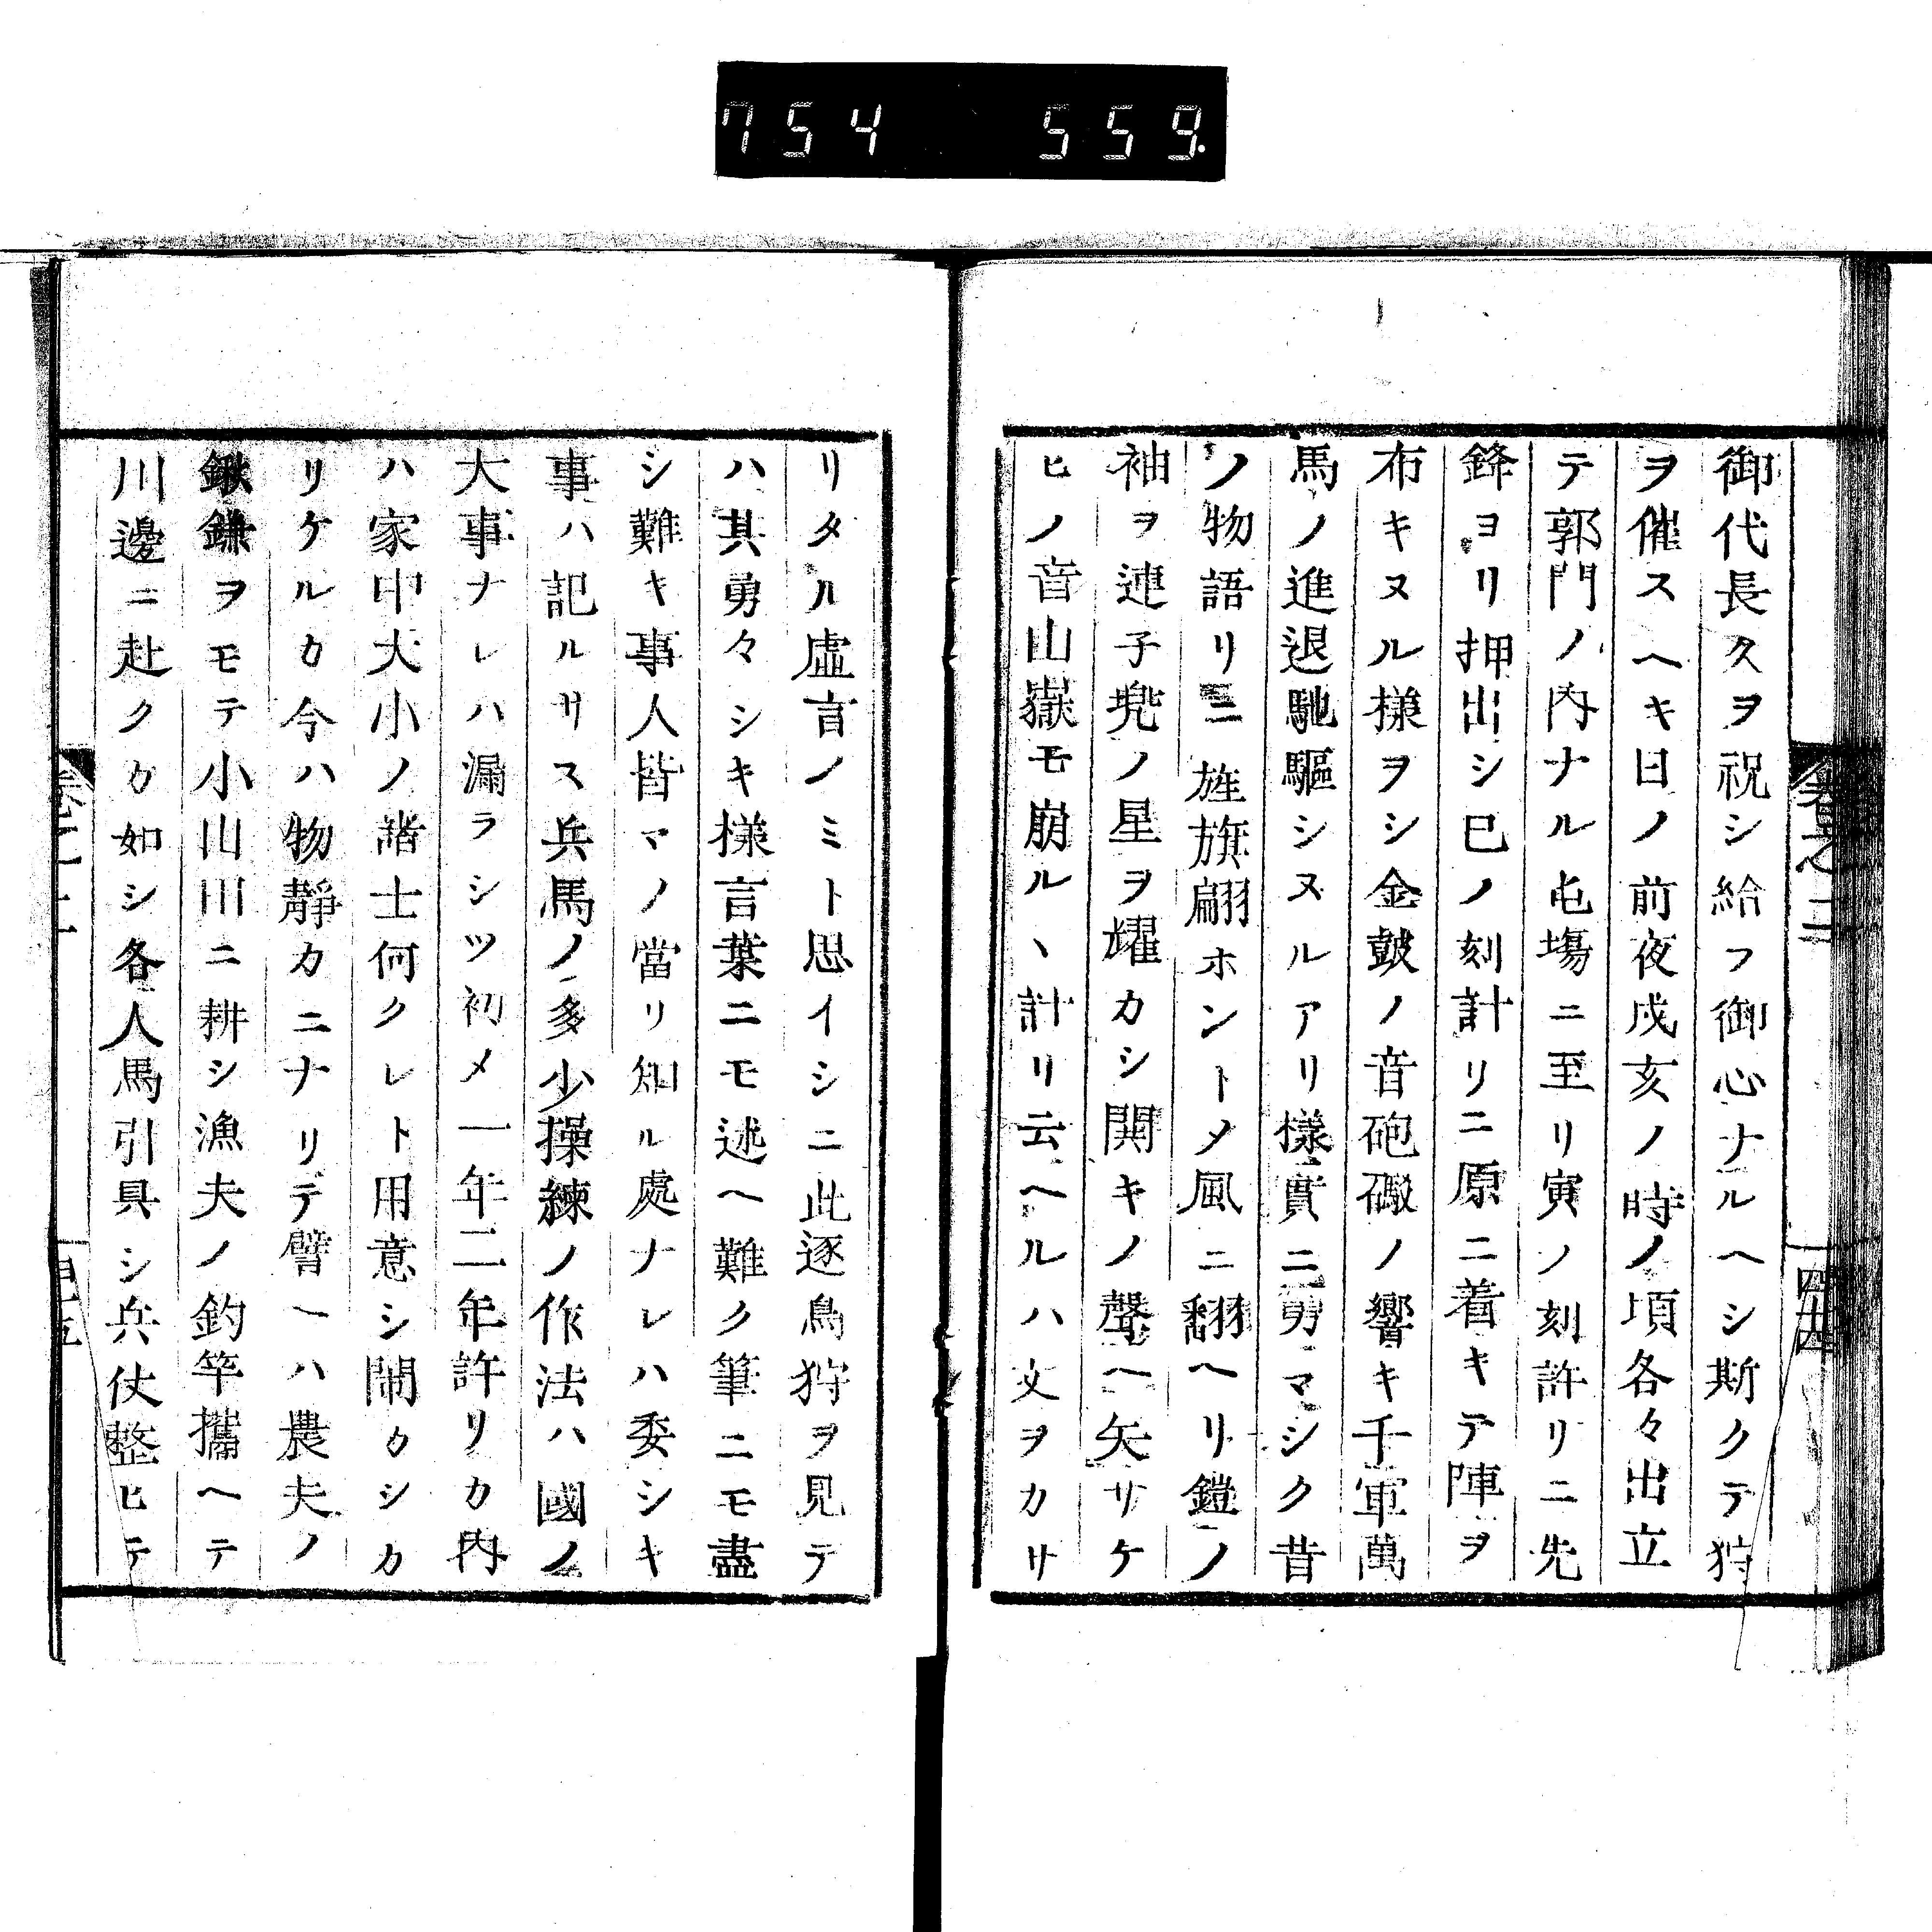 754 559.
御代長久ヲ祝シ給フ御心ナルヘシ斯クテ狩
ヲ催スヘキ日ノ前夜戌亥ノ時ノ頃各々出立
テ郭門ノ内ナル屯場ニ至リ寅ノ刻許リニ先
鋒ヨリ押出シ巳ノ刻計リニ原ニ着キテ陣ヲ
布キヌル様ヲシ金鼓ノ音砲礮ノ響キ千軍萬
馬ノ進退馳驅シヌルアリ樣實ニ勇マシク昔
ノ物語リニ旌旗翩ホントメ風ニ翻ヘリ鎧ノ
袖ヲ連子兜ノ星ヲ耀カシ関キノ聲ヘ矢サケ
ヒノ音山嶽モ崩ルヽ計リ云ヘルハ文ヲカサ
リタル虚言ノミト思イシニ此逐鳥狩ヲ見テ
ハ其勇々シキ樣言葉ニモ述ヘ難ク筆ニモ盡
シ難キ事人皆マノ當リ知ル處ナレハ委シキ
事ハ記ルサス兵馬ノ多少操練ノ作法ハ國ノ
大事ナレハ漏ラシツ初メ一年二年許リカ内
ハ家中大小ノ諸士何クレト用意シ閙カシカ
リケルカ今ハ物靜カニナリテ譬ヘハ農夫ノ
鍬鎌ヲモテ小山田ニ耕シ漁夫ノ釣竿攜ヘテ
川邊ニ赴クカ如シ各人馬引具シ兵仗整ヒテ